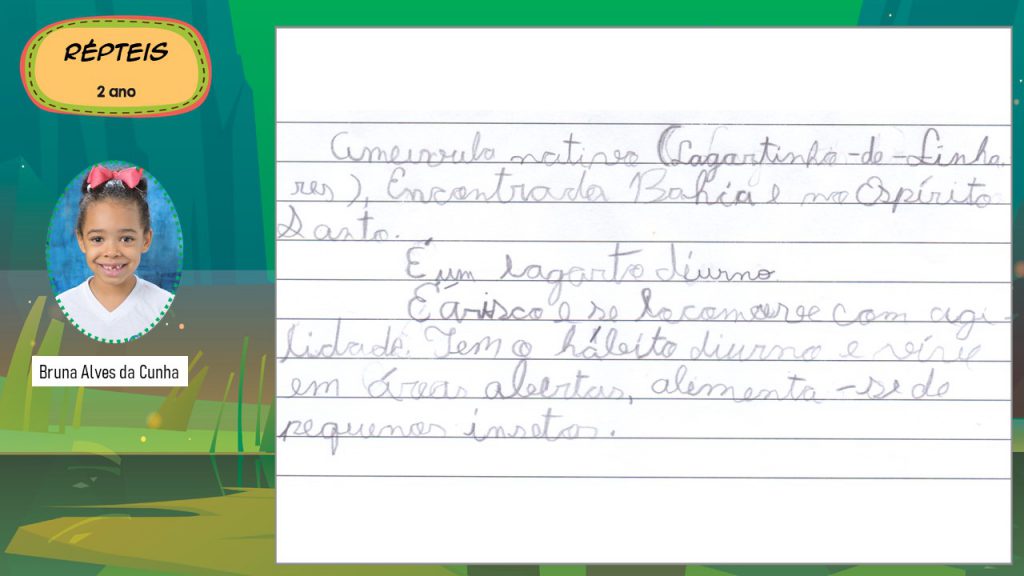 RÉPTEIS
2 ano
Bruna Alves da Cunha
Ameivula nativo (Lagartinho-de-Linha
res), Encontrada Bahia e no Espírito
Santo.
É um lagarto diurno
É árisco e se locomove com agi-
lidade. Tem o hábito diurno e vive
em áreas abertas, alimenta-se de
pequenos insetos.